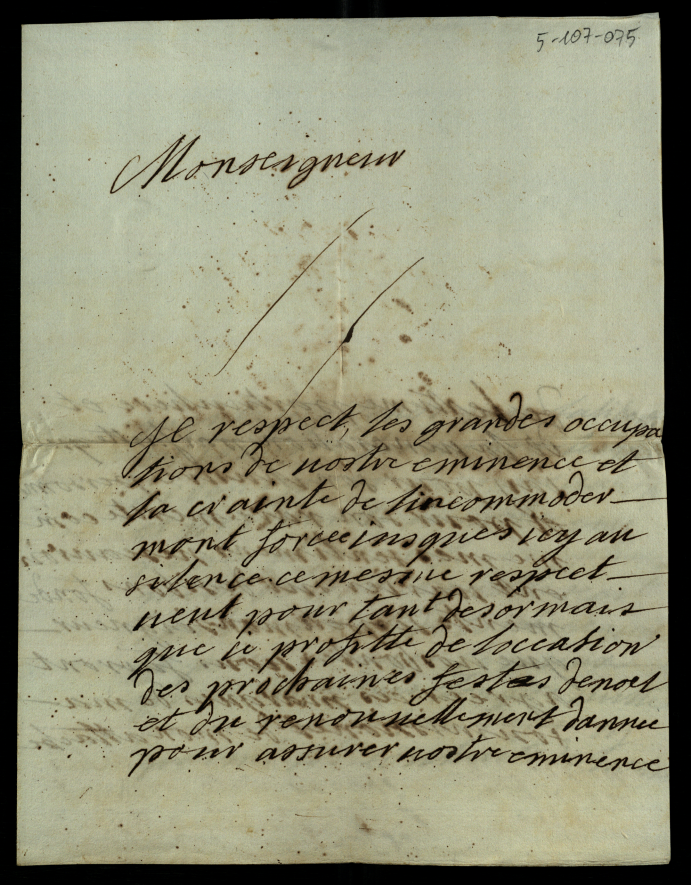 5-107-075
Monseigneur
Le respect, les grandes occupa
tions de vostre eminence et
la crainte de lincommoder
mont forcée iusques icy au
silence ce mesme respect
veut pour tant desormais
que ie profitte de loccasion
des prochaines festes denoel
et du renouuellement dannee
pour assurer vostre eminence